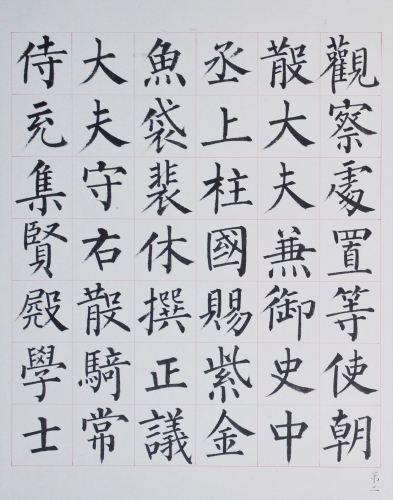 觀察處置等使朝
散大夫兼御史中
丞上柱國賜紫金
魚袋裴休撰正議
大夫守右散騎常
侍充集賢殿學士
第二